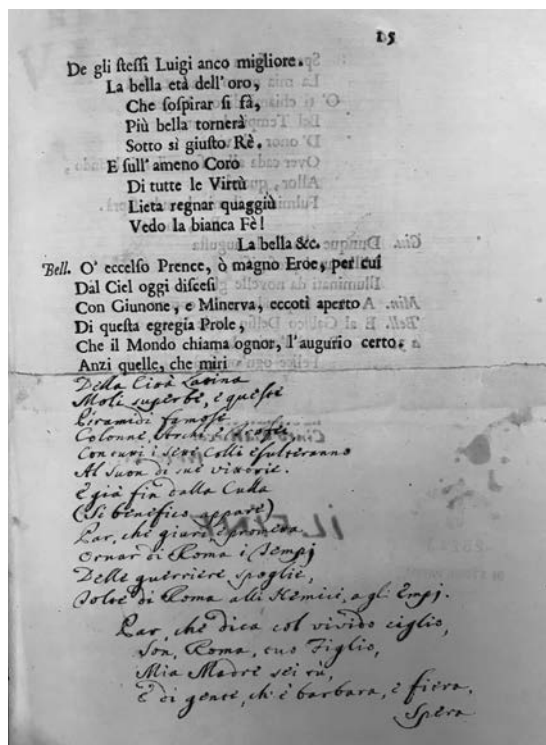 15
De gli stessi Luigi anco migliore.
La bella età dell' oro,
Che sospirar si fà,
Più bella tornerà
Sotto sì giusto Rè.
E sull' ameno Coro
Di tutte le Virtù
Lieta regnar quaggiù
Vedo la bianca Fè!
La bella &c.
Bell. O' eccelso Prence, ò magno Eroe, per cui
Dal Ciel oggi discesi
Con Giunone, e Minerva, eccoti aperto
Di questa egregia Prole,
Che il Mondo chiama ognor, l'augurio certo.
Anzi quelle, che miri
Della Città Latina
Moli superbe, e queste
Piramidi famose
Colonne, Archi, e Trofei
Con cui i sette Colli esulteranno
Al suon di sue vittorie.
E già fin dalla Culla
(Sì benefico appare)
Par, che giuri, e prometta
Ornar di Roma i Tempj
Delle guerriere spoglie,
Tolte di Roma alli Nemici, a gli Empj.
Par, che dica col vivido ciglio,
Son, Roma, tuo Figlio,
Mia Madre sei tù,
E di gente, ch'è barbara, e fiera,
Spera